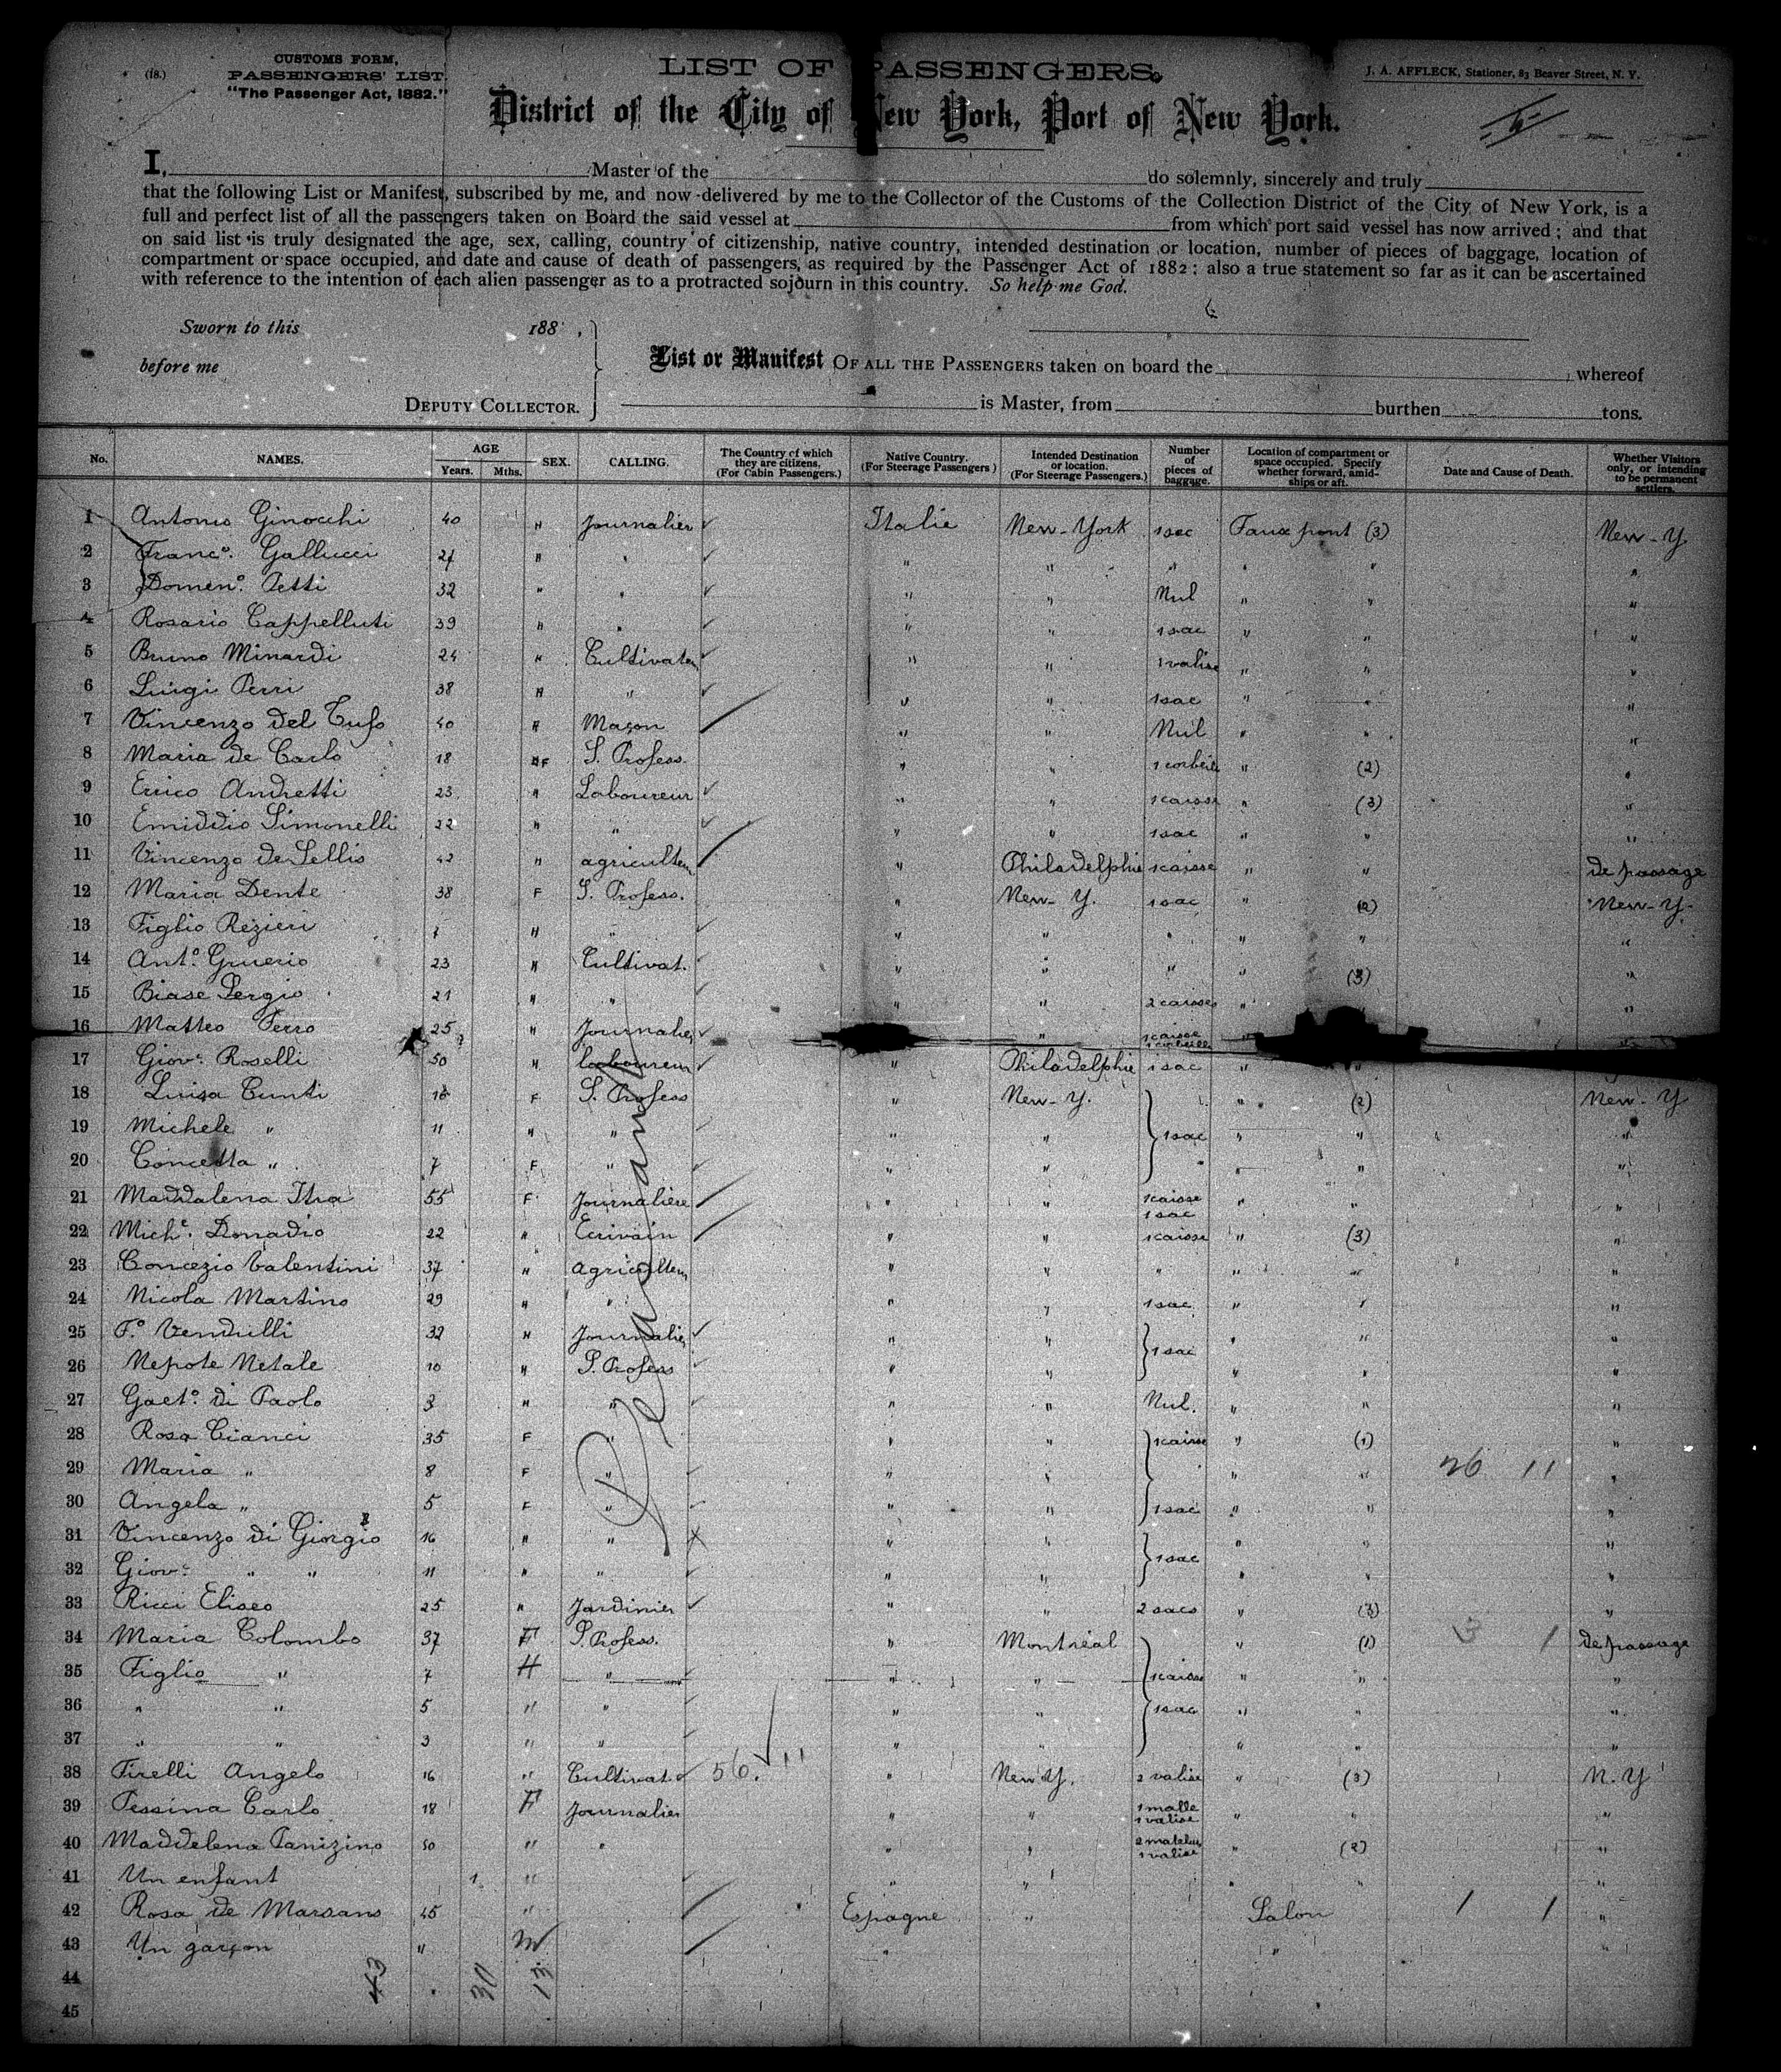 (18.)
CUSTOMS FORM,
PASSENGERS' LIST.
"The Passenger Act, 1882."
LIST OF PASSENGERS,
J. A. AFFLECK, Stationer, 83 Beaver Street, N. Y.
District of the City of New York, Port of New York.
I, Master of the do solemnly, sincerely and truly
that the following List or Manifest, subscribed by me, and now delivered by me to the Collector of the Customs of the Collection District of the City of New York, is a
full and perfect list of all the passengers taken on Board the said vessel at from which port said vessel has now arrived; and that
on said list is truly designated the age, sex, calling, country of citizenship, native country, intended destination or location, number of pieces of baggage, location of
compartment or space occupied, and date and cause of death of passengers, as required by the Passenger Act of 1882; also a true statement so far as it can be ascertained
with reference to the intention of each alien passenger as to a protracted sojourn in this country. So help me God.
Sworn to this 188 ,
before me
DEPUTY COLLECTOR.
List or Manifest OF ALL THE PASSENGERS taken on board the , whereof
is Master, from burthen tons.
No. NAMES. AGE Years. Mths. SEX. CALLING. The Country of which they are citizens. (For Cabin Passengers.) Native Country. (For Steerage Passengers) Intended Destination or location. (For Steerage Passengers.) Number of pieces of baggage. Location of compartment or space occupied. Specify whether forward, amidships or aft. Date and Cause of Death. Whether Visitors only, or intending to be permanent settlers.
1 Antonio Ginocchi 40 H Journalier Italie New-York 1 sac Faux pont (3) New-Y.
2 Franc°. Gallucci 27 " " " " " " " "
3 Domen°. Petti 32 " " " " Nul " " "
4 Rosario Cappelluti 39 " " " " 1 sac " " "
5 Bruno Minardi 24 " Cultivateur " " 1 valise " " "
6 Luigi Perri 38 H " " " 1 sac " " "
7 Vincenzo del Tufo 40 H Maçon " " Nul " " "
8 Maria de Carlo 18 F S. Profess. " " 1 corbeille " (2) "
9 Errico Andretti 23 " Laboureur " " 1 caisse " (3) "
10 Emiddio Simonelli 22 " " " " 1 sac " " "
11 Vincenzo de Lellis 42 " agriculteur " Philadelphie 1 caisse " " de passage
12 Maria Dente 38 F S. Profess. " New-Y. 1 sac " (2) New-Y.
13 Figlio Rezieri H " " " " " " "
14 Ant°. Gruerio 23 H Cultivat. " " " " (3) "
15 Biase Sergio 21 " " " " 2 caisses " "
16 Matteo Perro 25 " Journalier " 1 caisse 1 corbeille "
17 Giov. Roselli 50 " laboureur " Philadelphie 1 sac "
18 Luisa Cunti 18 F S. Profess " New-Y. " (2) New-Y
19 Michele " 11 H " " " 1 sac " " "
20 Concetta " 7 F " " " " " "
21 Maddalena Itra 55 F Journalière " " 1 caisse 1 sac " " "
22 Mich°. Donadio 22 " Ecrivain " " 1 caisse " (3) "
23 Concezio Valentini 37 H agriculteur " " " " " "
24 Nicola Martino 29 H " " " 1 sac " " "
25 F.° Vendrilli 32 H Journalier " " 1 sac " " "
26 Nepote Natale 10 H S. Profess " " " " "
27 Gaet°. di Paolo 3 " " " " Nul. " " "
28 Rosa Cianci 35 F " " " 1 caisse " (1) "
29 Maria " 8 F " " " " " 26 11 "
30 Angela " 5 F " " " 1 sac " " "
31 Vincenzo di Giorgio 16 " " " " 1 sac " " "
32 Giov. " " 11 " " " " " " "
33 Ricci Eliseo 25 " Jardinier " " 2 sacs " (3) "
34 Maria Colombo 37 F S. Profess. " Montréal " (1) 3 1 de passage
35 Figlio " 7 H " " " 1 caisse " " "
36 " " 5 " " " " 1 sac " " "
37 " " 3 " " " " " " "
38 Firelli Angelo 16 " Cultivat. 56. 11 " New Y. 2 valise " (3) N.Y
39 Pessina Carlo 18 F Journalier " " 1 malle 1 valise " " "
40 Maddelena Panizino 50 " " " " 2 matelas 1 valise " (2) "
41 Un enfant 1 " " " " " "
42 Rosa de Marsans 45 " Espagne " Salon 1 1 "
43 Un garçon " M " " "
44
45
43 30 13